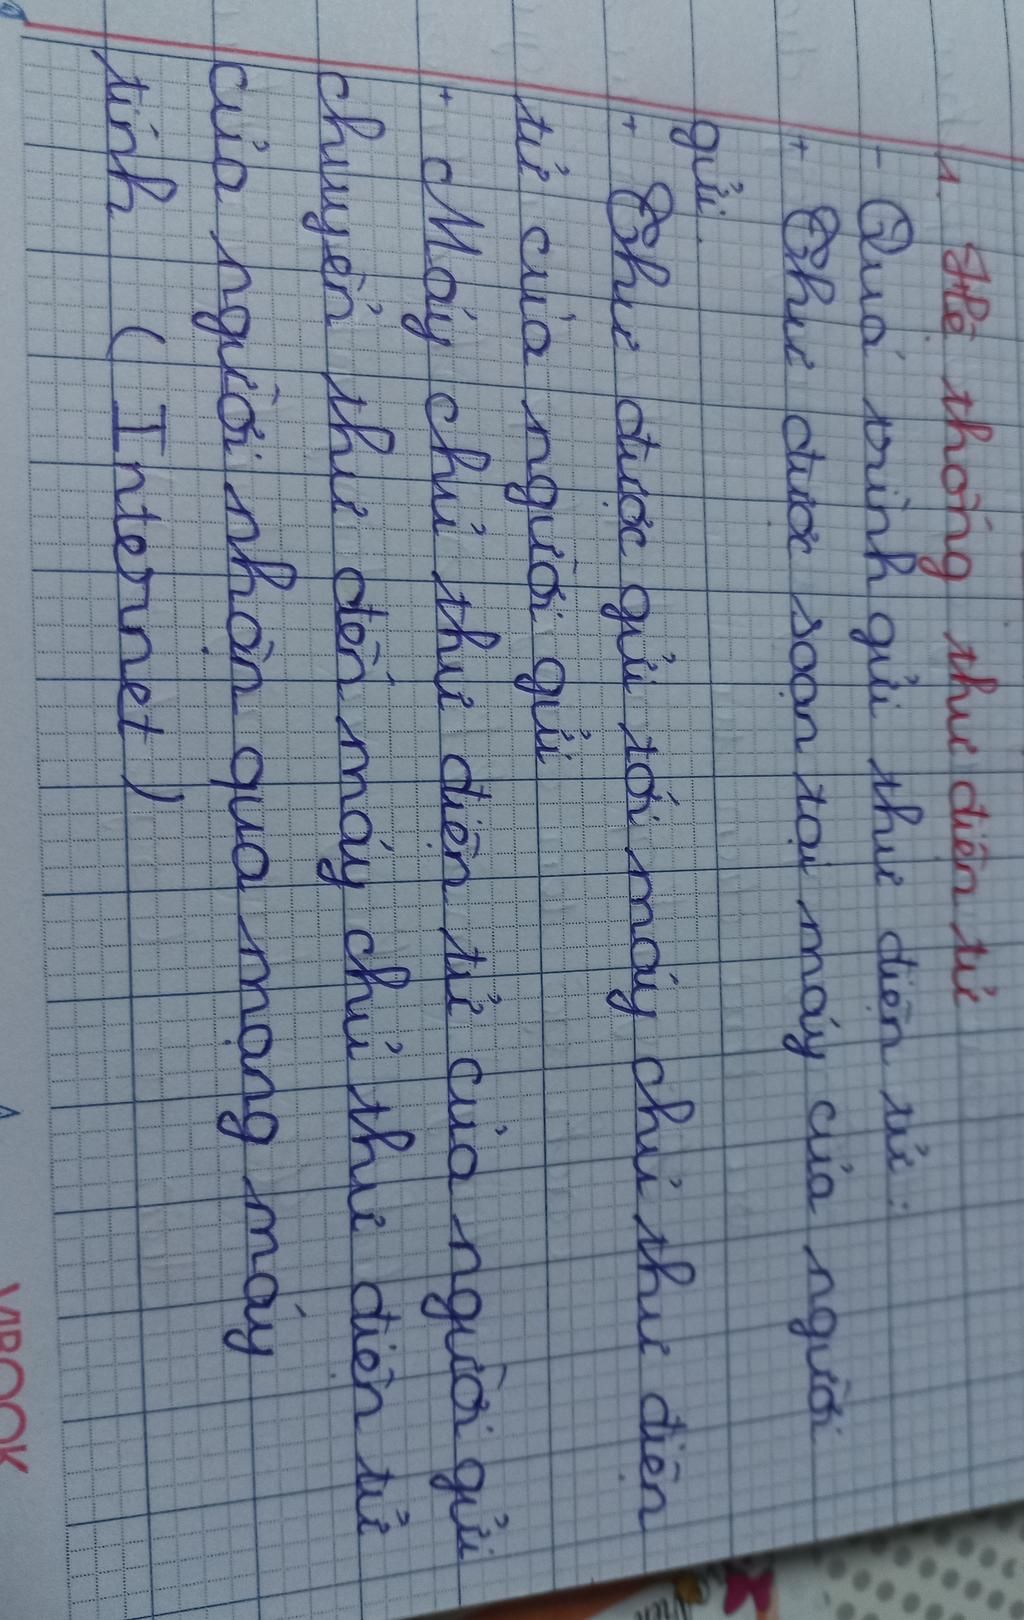 1. Hệ thống thư điện tử
- Quá trình gửi thư điện tử:
+ Thư được soạn tại máy của người
gửi.
+ Thư được gửi tới máy chủ thư điện
tử của người gửi
+ Máy chủ thư điện tử của người gửi
chuyển thư đến máy chủ thư điện tử
của người nhận qua mạng máy
tính (Internet)
VIBOOK